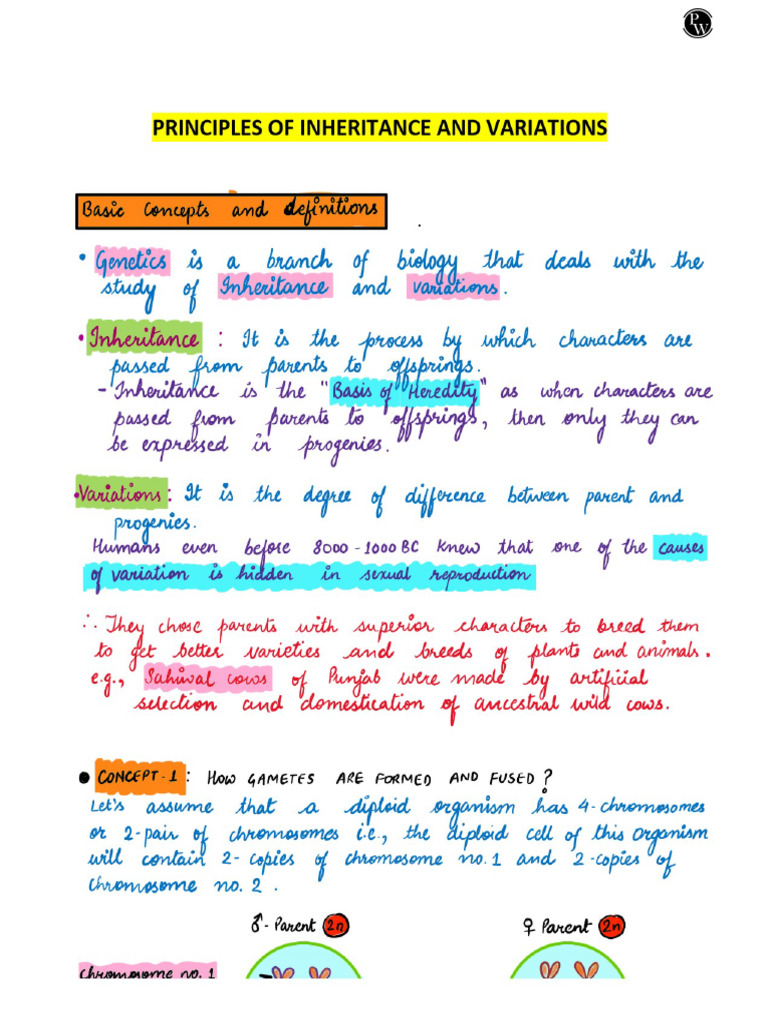 PW
PRINCIPLES OF INHERITANCE AND VARIATIONS
Basic Concepts and definitions
• Genetics is a branch of biology that deals with the
study of Inheritance and variations.
• Inheritance : It is the process by which characters are
passed from parents to offsprings.
- Inheritance is the "Basis of Heredity" as when characters are
passed from parents to offsprings, then only they can
be expressed in progenies.
• Variations : It is the degree of difference between parent and
progenies.
Humans even before 8000-1000 BC knew that one of the causes
of variation is hidden in sexual reproduction
∴ They chose parents with superior characters to breed them
to get better varieties and breeds of plants and animals.
e.g., Sahiwal cows of Punjab were made by artificial
selection and domestication of ancestral wild cows.
● CONCEPT-1 : HOW GAMETES ARE FORMED AND FUSED?
Let's assume that a diploid organism has 4-chromosomes
or 2-pair of chromosomes i.e., the diploid cell of this organism
will contain 2-copies of chromosome no. 1 and 2-copies of
chromosome no. 2.
♂-Parent 2n ♀ Parent 2n
chromosome no. 1